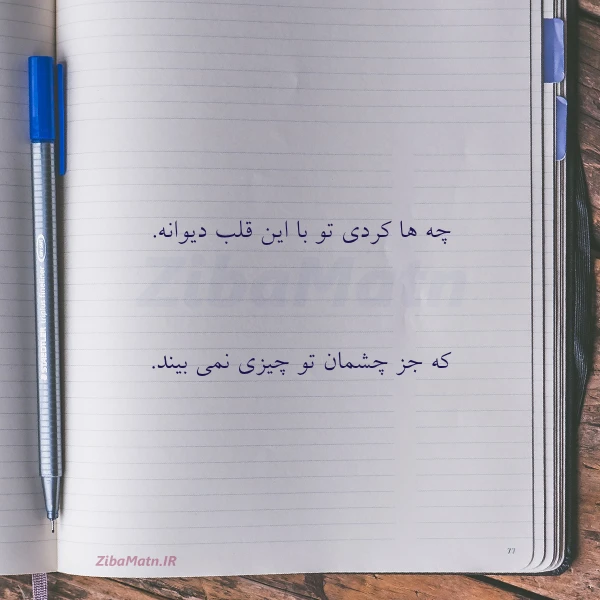 چه ها کردی تو با این قلب دیوانه.
ZibaMatn
که جز چشمان تو چیزی نمی بیند.
ZibaMatn.IR